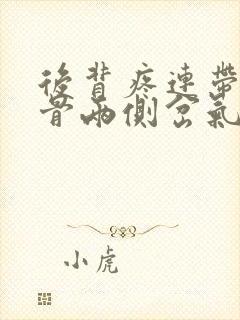 後背疼連帶
骨兩側岔氣
小虎